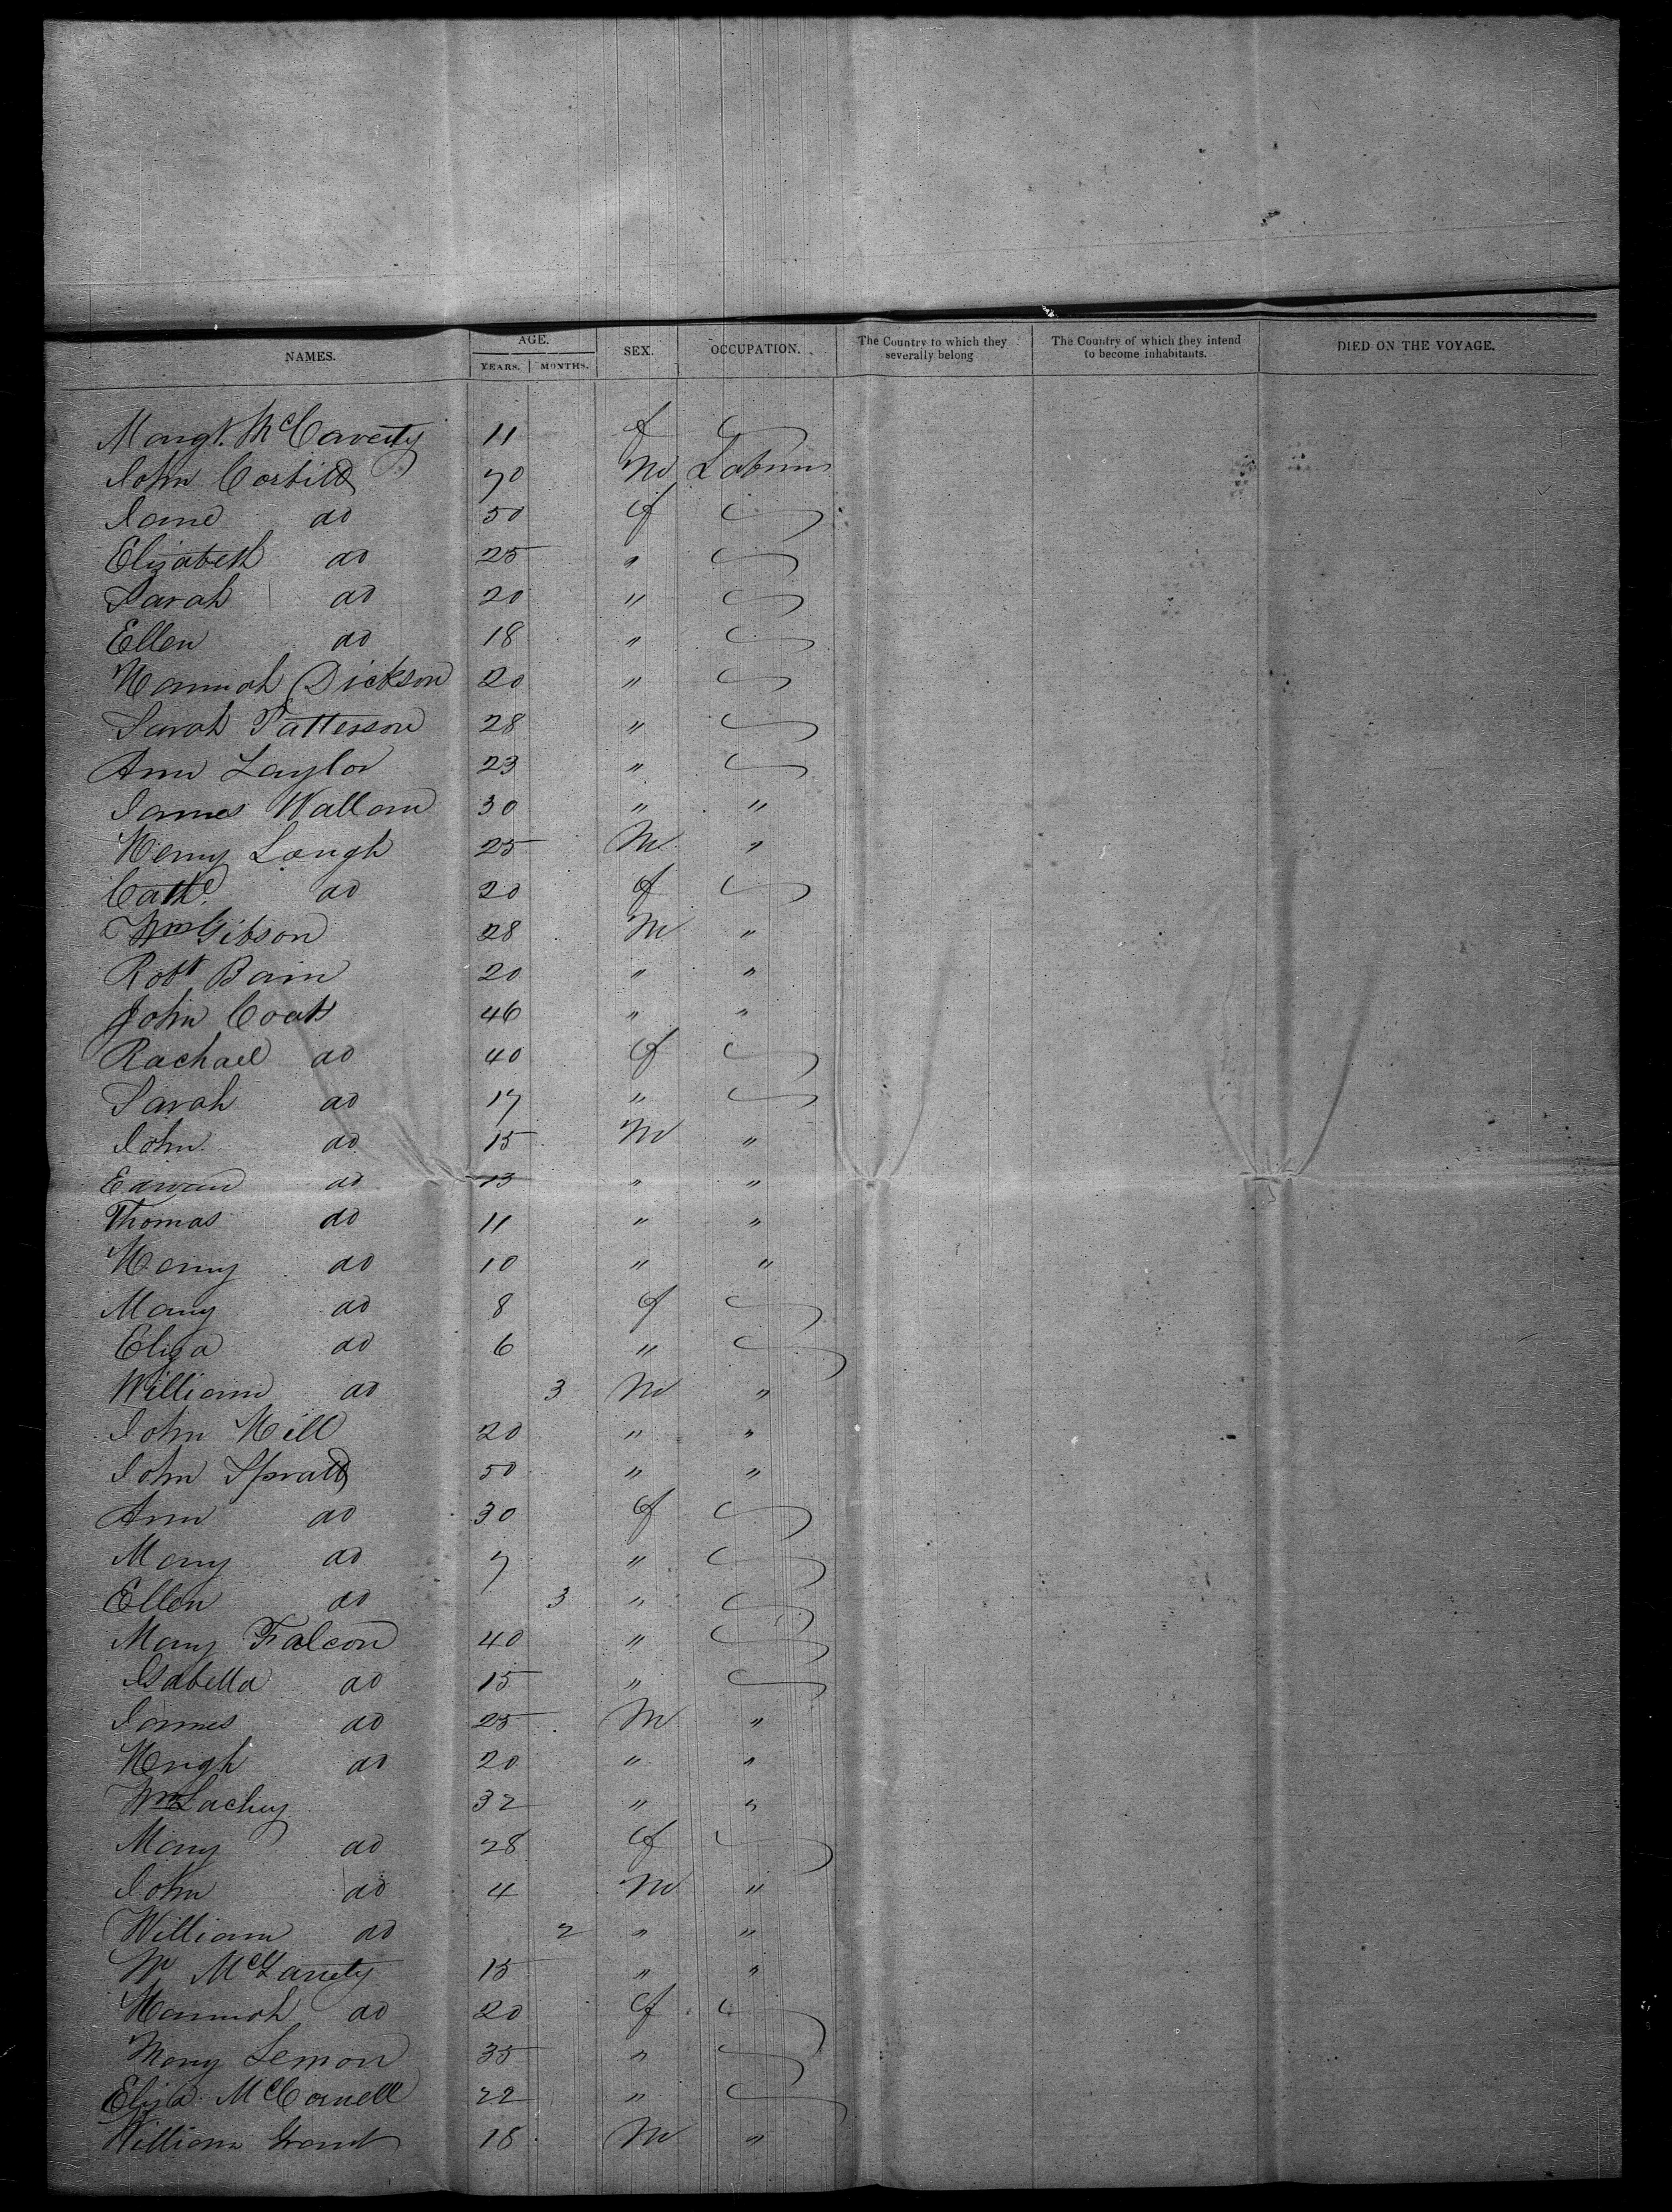 NAMES. AGE. YEARS. MONTHS. SEX. OCCUPATION. The Country to which they severally belong The Country of which they intend to become inhabitants. DIED ON THE VOYAGE.
Margt. McCaverty 11 f
John Corbitt 70 M Labourer
Jane do 50 f
Elizabeth do 25 "
Sarah do 20 "
Ellen do 18 "
Hannah Dickson 20 "
Sarah Patterson 28 "
Ann Taylor 23 "
James Wallam 30 " "
Henry Laugh 25 M "
Cathe. do 20 f
Wm Gibson 28 M "
Robt Bain 20 " "
John Coats 46 " "
Rachael do 40 f
Sarah do 17 "
John do 15 M "
Edward do 13 " "
Thomas do 11 " "
Henry do 10 " "
Mary do 8 f
Eliza do 6 "
William do 3 M "
John Hill 20 " "
John Spratt 50 " "
Ann do 30 f
Mary do 7 "
Ellen do 3 "
Mary Falcon 40 "
Isabella do 15 "
James do 25 M "
Hugh do 20 " "
Wm Lachey 32 " "
Mary do 28 f
John do 4 M "
William do 2 " "
W 15 " "
Hannah do 20 f
Mary Lemon 35 "
Eliza McConnell 22 "
William Grant 18 M "